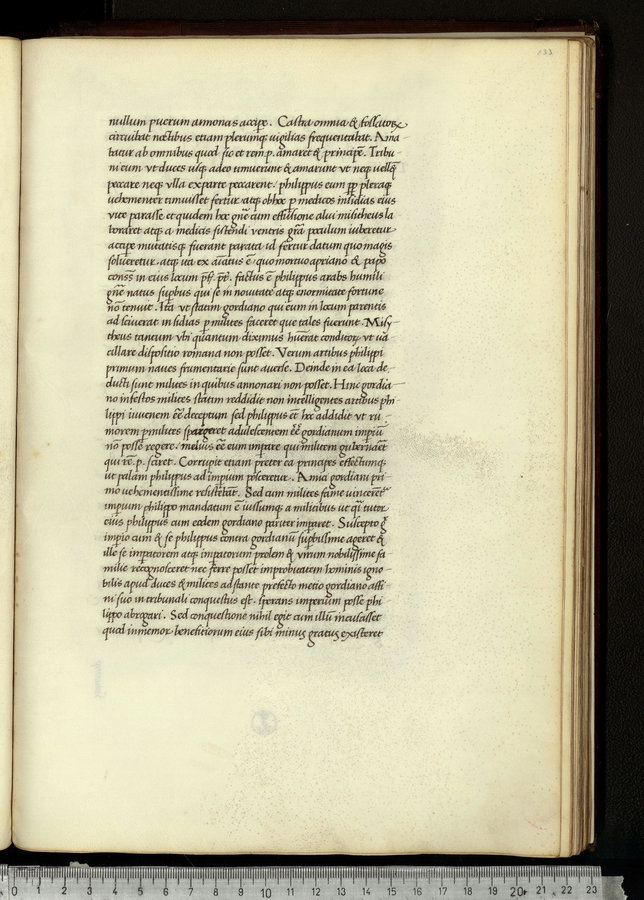 133
nullum puerum annonas accipe. Castra omnia & fossatorꝝ
circuibat noctibus etiam plerumqꝫ uigilias frequentabat. Ama
batur ab omnibus quod sic et rem p. amaret & principē. Tribu
ni eum vt duces usqꝫ adeo timuerunt & amarunt vt neqꝫ uellēt
peccare neqꝫ vlla ex parte peccarent. philippus eum pp̄ pleraqꝫ
uehementer timuisset fertur atqꝫ ob hoc p medicos insidias eius
vite parasse et quidem hoc gn̄e cum effusione alui misitheus la
boraret atqꝫ a medicis sistendi ventris gr̄a poculum iuberetur
accipe mutatisqꝫ fuerant parata id fertur datum quo magis
solueretur. atqꝫ ita ex aīatus ē. quo mortuo apriano & papo
conss̄ in eius locum p̄f. p̄t. factus ē philippus arabs humili
gn̄e natus supbus qui se in nouitate atqꝫ enormitate fortune
nō tenuit. Ita vt statim gordiano qui eum in locum parentis
ad sciuerat insidias p milites faceret que tales fuerunt. Misy
theus tantum vbi quantum diximus huerat conditorꝝ vt ua
cillare dispositio romana non posset. Verum artibus philippi
primum naues frumentarie sunt auerse. Deinde in ea loca de
ducti sunt milites in quibus annonari non posset. Hinc gordia
no infestos milites statim reddidit non intelligentes artibus phi
lippi iuuenem eē deceptum sed philippus et̄ hoc addidit vt ru
morem p milites spargeret adulescentem eē gordianum impiū
nō posse regere. melius eē eum impare qui militem gubernaret
qui rē. p. sciret. Corrupit etiam preter ea principes effectumqꝫ
ut palam philippus ad impium posceretur. Amici gordiani pri
mo uehementissime resistebāt. Sed cum milites fame uincerētᵘ
impium philippo mandatum ē iussumqꝫ a militibus ut q̄i tutor
eius philippus cum eodem gordiano pariter imparet. Suscepto g̊
impio cum & se philippus contra gordianū supbissime ageret &
ille se impatorem atqꝫ impatorum prolem & virum nobilissime fa
milie recognosceret nec ferre posset improbitatem hominis igno
bilis apud duces & milites adstante prefecto metio gordiano affi
ni suo in tribunali conquestus est. sperans imperium posse phi
lippo abrogari. Sed conquestione nihil egit cum illū incusasset
quod inmemor beneficiorum eius sibi minus gratus existeret